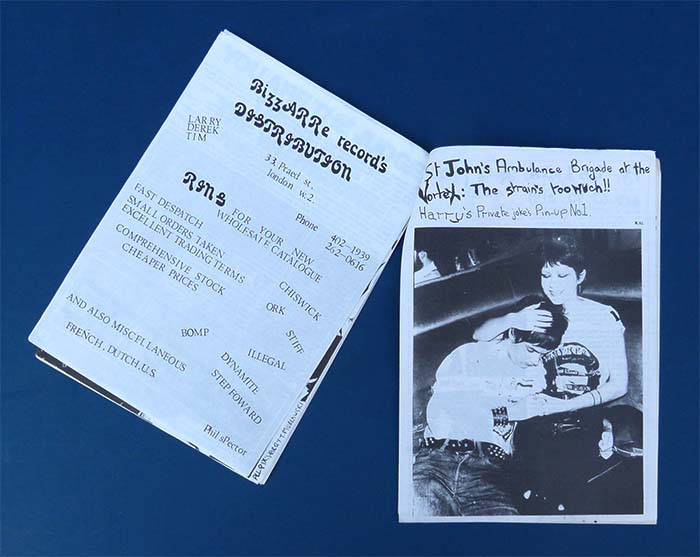 BizzARRe record's
DISTRIBUTION
LARRY
DEREK
TIM
33, Praed st,
london w.2.
RING FOR YOUR NEW
WHOLESALE CATALOGUE
Phone 402-1939
262-0616
FAST DESPATCH
SMALL ORDERS TAKEN
EXCELLENT TRADING TERMS
COMPREHENSIVE STOCK
CHEAPER PRICES
CHISWICK
ORK
STIFF
BOMP
ILLEGAL
AND ALSO MISCELLANEOUS
FRENCH, DUTCH, U.S.
DYNAMITE
STEP FOWARD
Phil sPector
St John's Ambulance Brigade at the
Vortex: The strain's too much!!
Harry's Private joke's Pin-up No1.